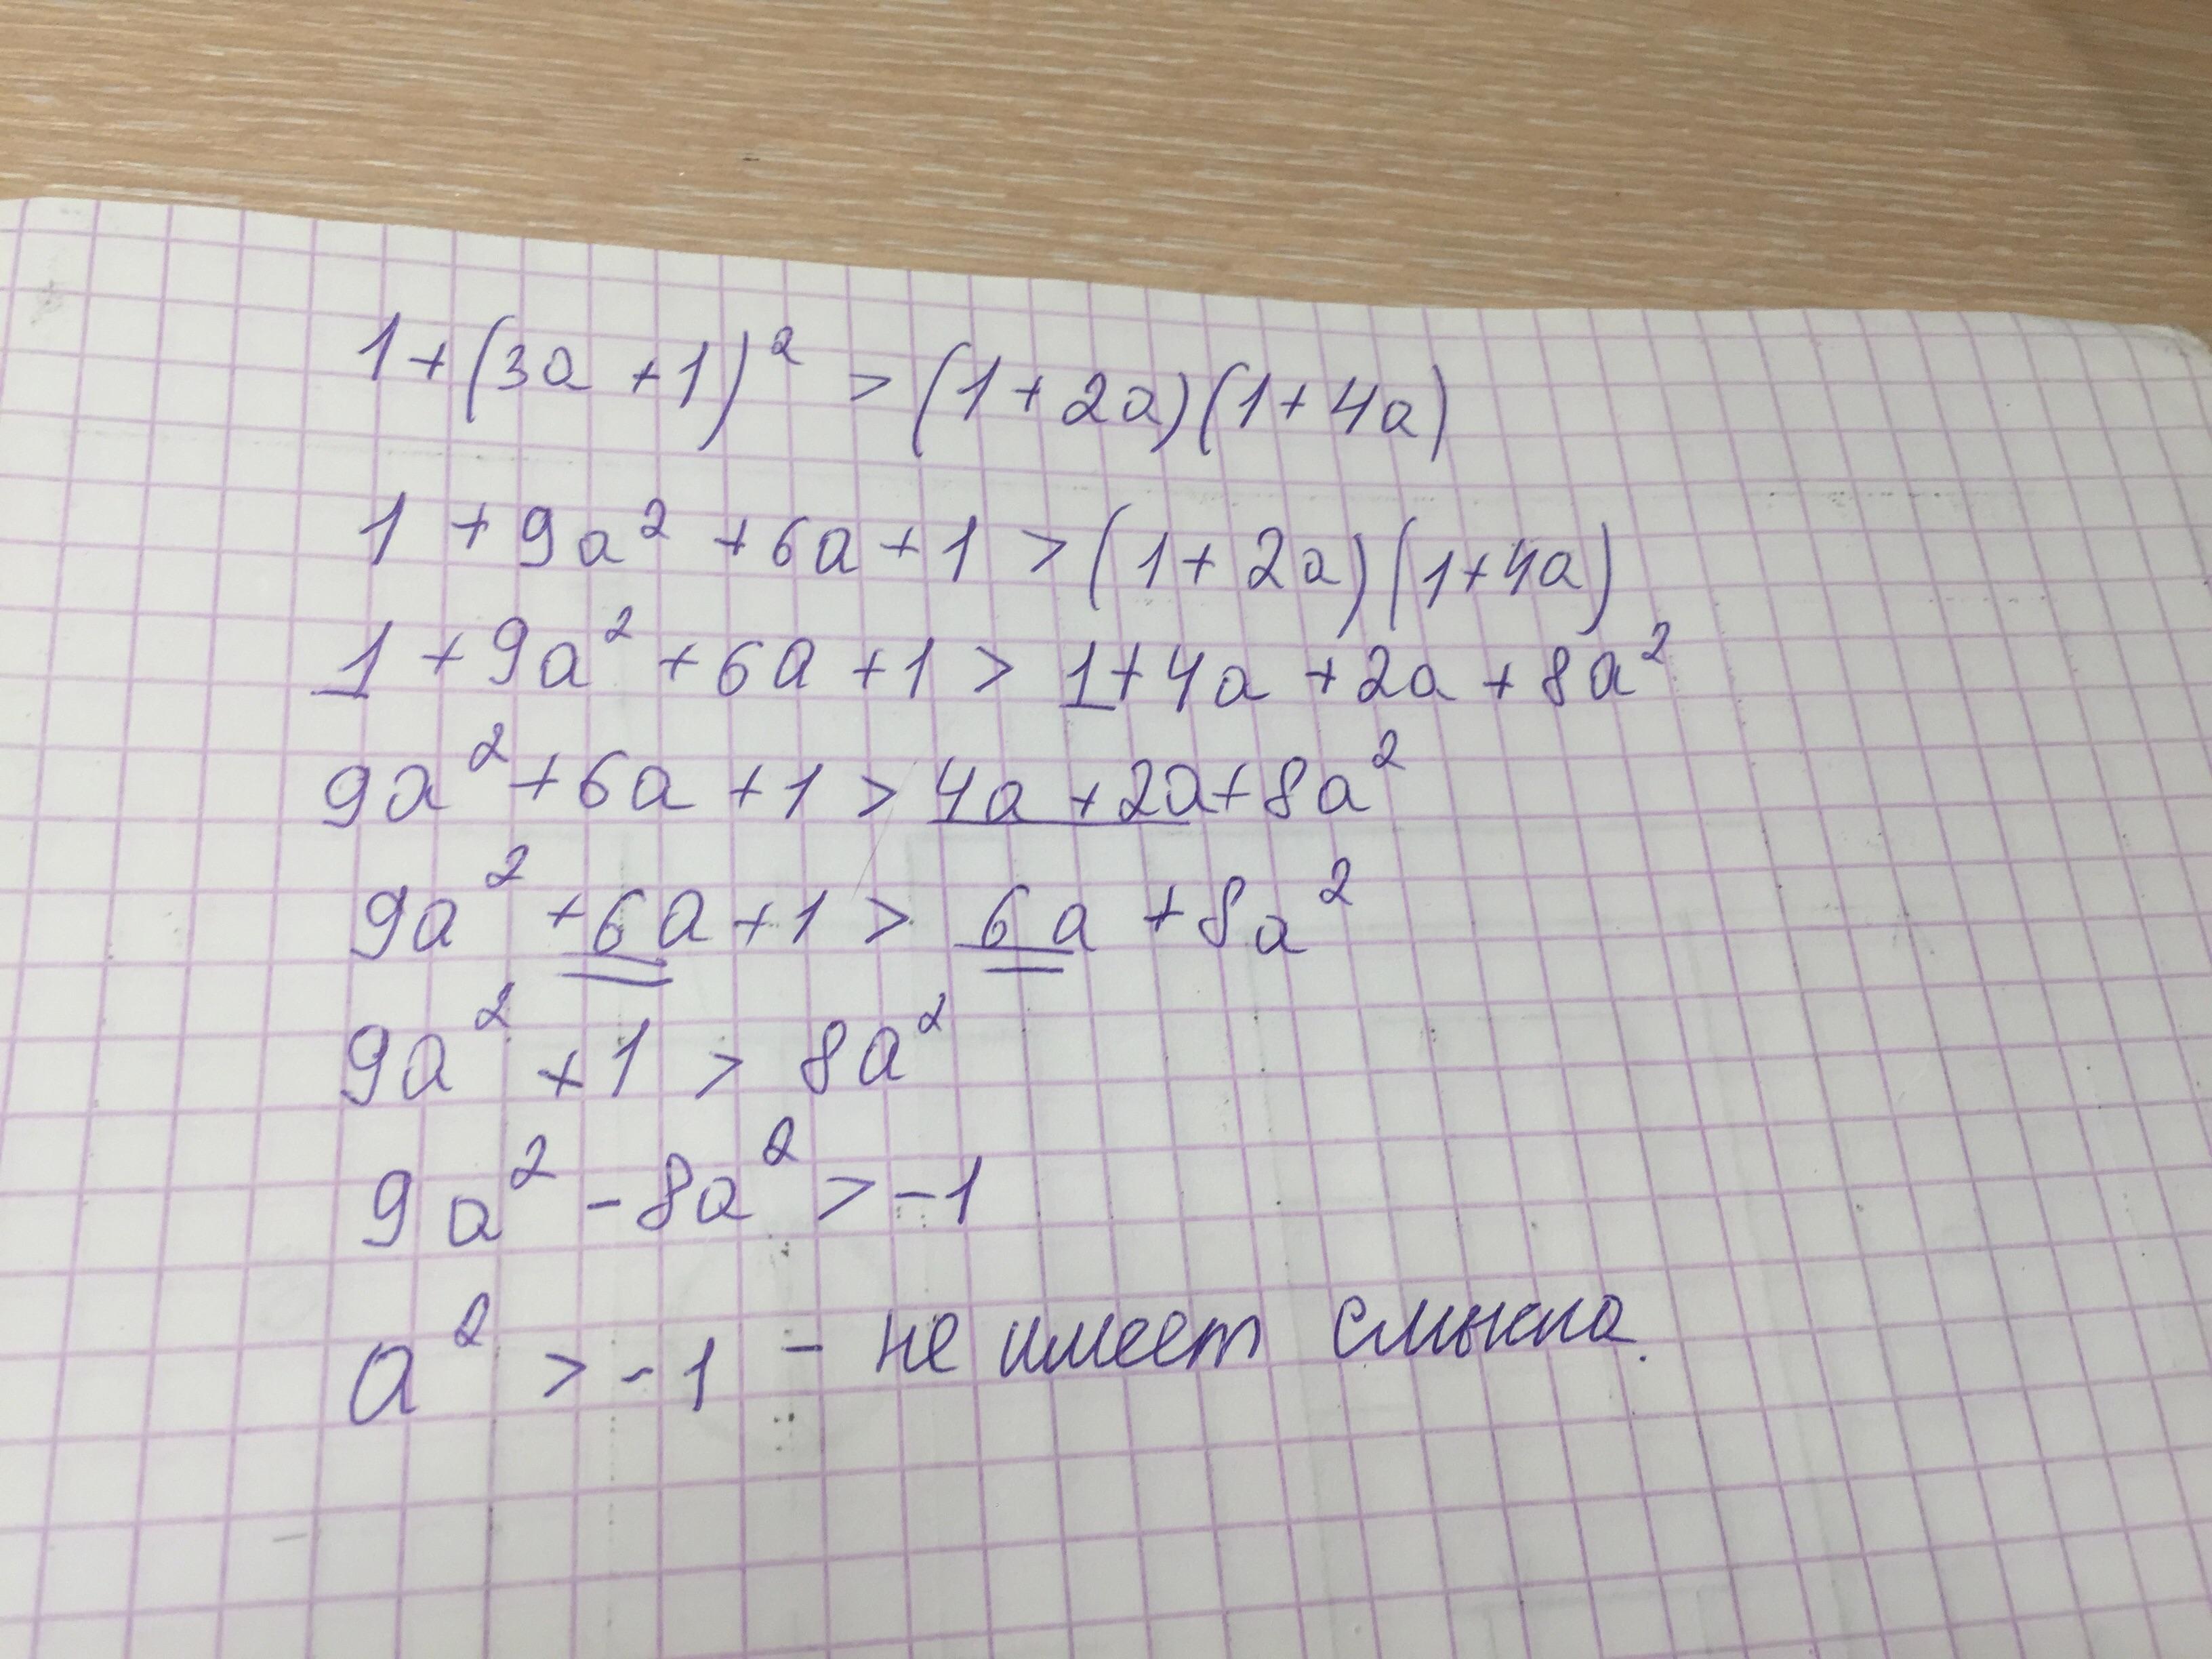 1+(3a+1)² > (1+2a)(1+4a)
1+9a²+6a+1 > (1+2a)(1+4a)
1+9a²+6a+1 > 1+4a+2a+8a²
9a²+6a+1 > 4a+2a+8a²
9a²+6a+1 > 6a+8a²
9a²+1 > 8a²
9a²-8a² > -1
a² > -1 - не имеет смысла.